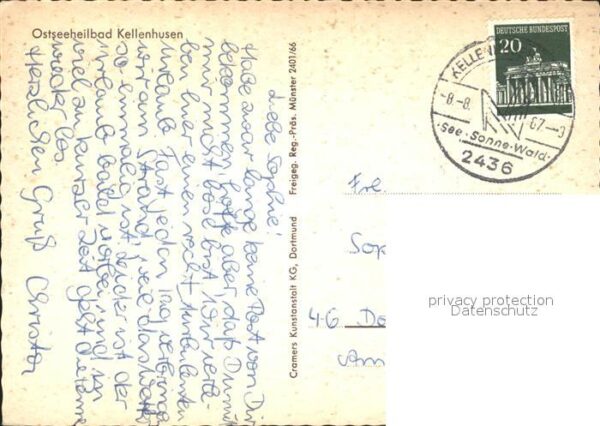 Ostseeheilbad Kellenhusen
Liebe Sophie!
Habe zwar lange keine Post von Dir
bekommen, hoffe aber daß Du mir
nicht böse bist. Wir verle-
ben hier einen recht
Urlaub. Fast jeden Tag
wir am Strand, weil das Wetter
so einmalig ist. Leider ist der
Urlaub bald vorbei und in
viel zu kurzer Zeit geht die
wieder los.
Herzlichen Gruß Christa
Cramers Kunstanstalt KG, Dortmund Freigeg. Reg.-Präs. Münster 2401/66
DEUTSCHE BUNDESPOST
20
KELLE
-8.-8. 67.--3
See·Sonne·Wald
2436
Frl.
Sop
46 Do
privacy protection
Datenschutz